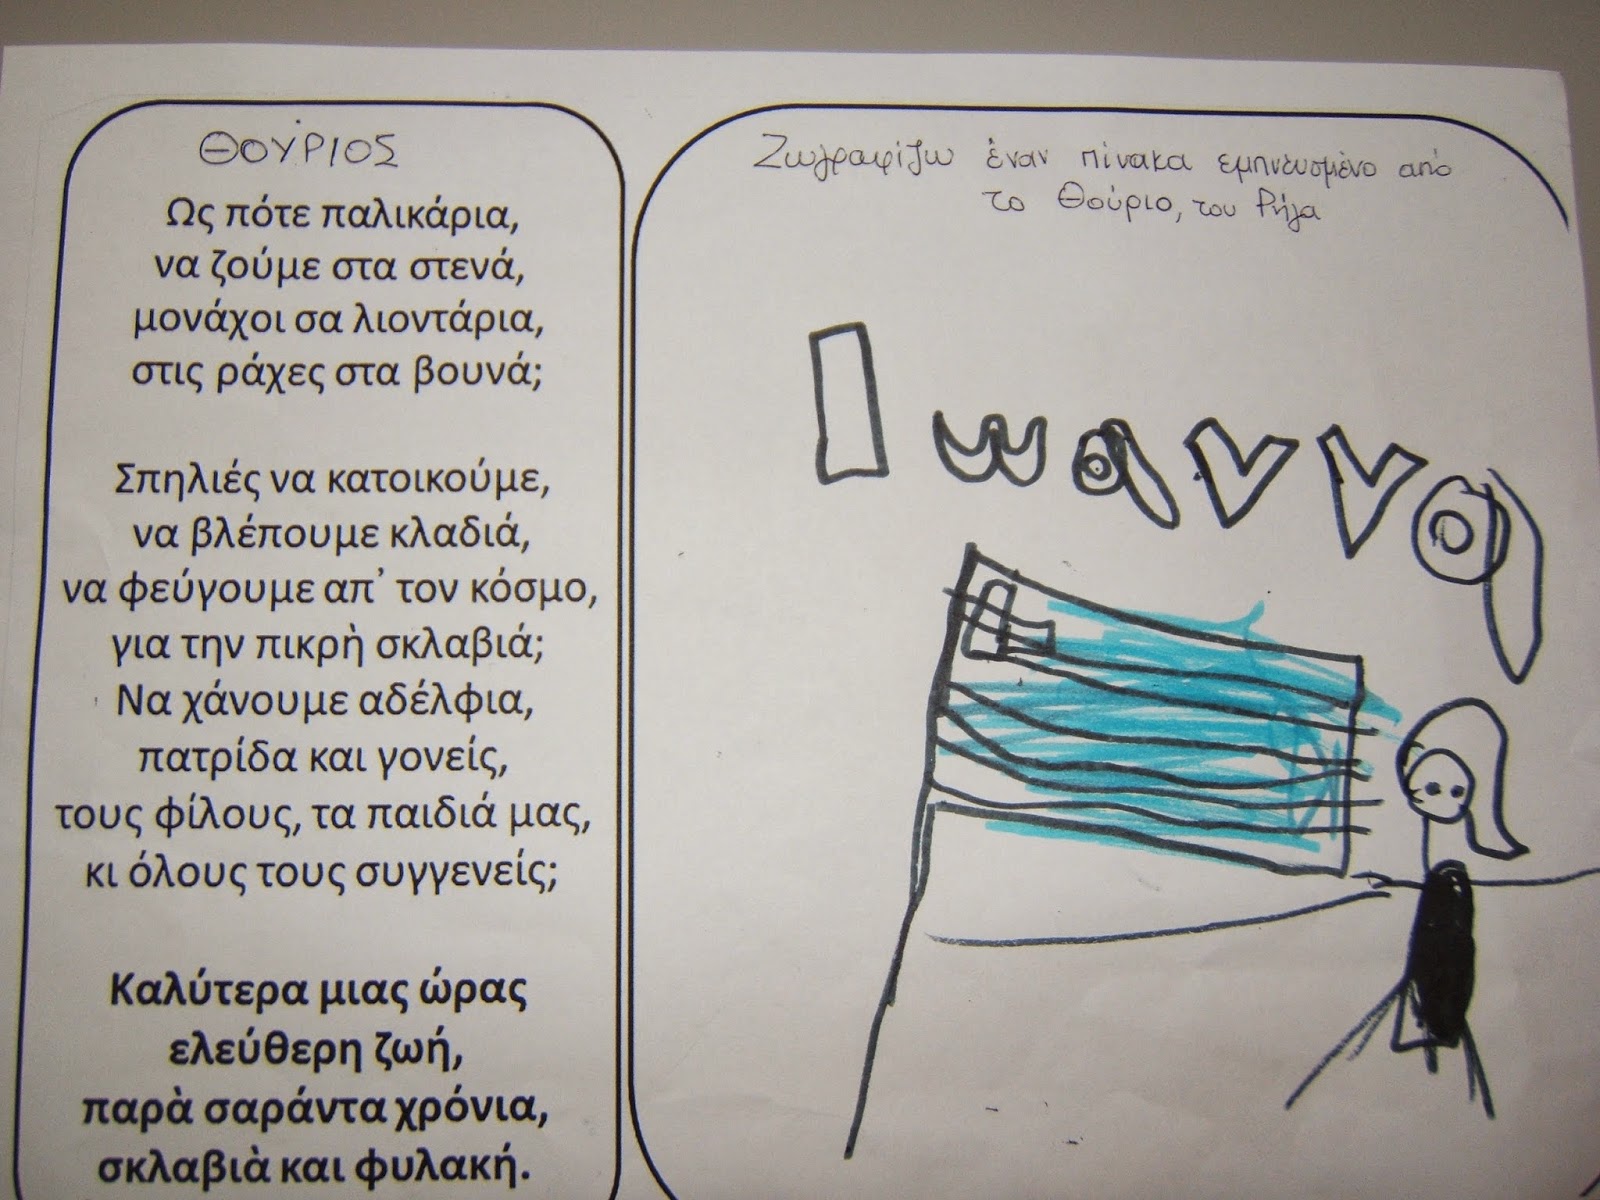 ΘΟΥΡΙΟΣ
Ως πότε παλικάρια,
να ζούμε στα στενά,
μονάχοι σα λιοντάρια,
στις ράχες στα βουνά;
Σπηλιές να κατοικούμε,
να βλέπουμε κλαδιά,
να φεύγουμε απ’ τον κόσμο,
για την πικρὴ σκλαβιά;
Να χάνουμε αδέλφια,
πατρίδα και γονείς,
τους φίλους, τα παιδιά μας,
κι όλους τους συγγενείς;
Καλύτερα μιας ώρας
ελεύθερη ζωή,
παρὰ σαράντα χρόνια,
σκλαβιὰ και φυλακή.
Ζωγραφίζω έναν πίνακα εμπνευσμένο από
το Θούριο, του Ρήγα
Ιωαννα